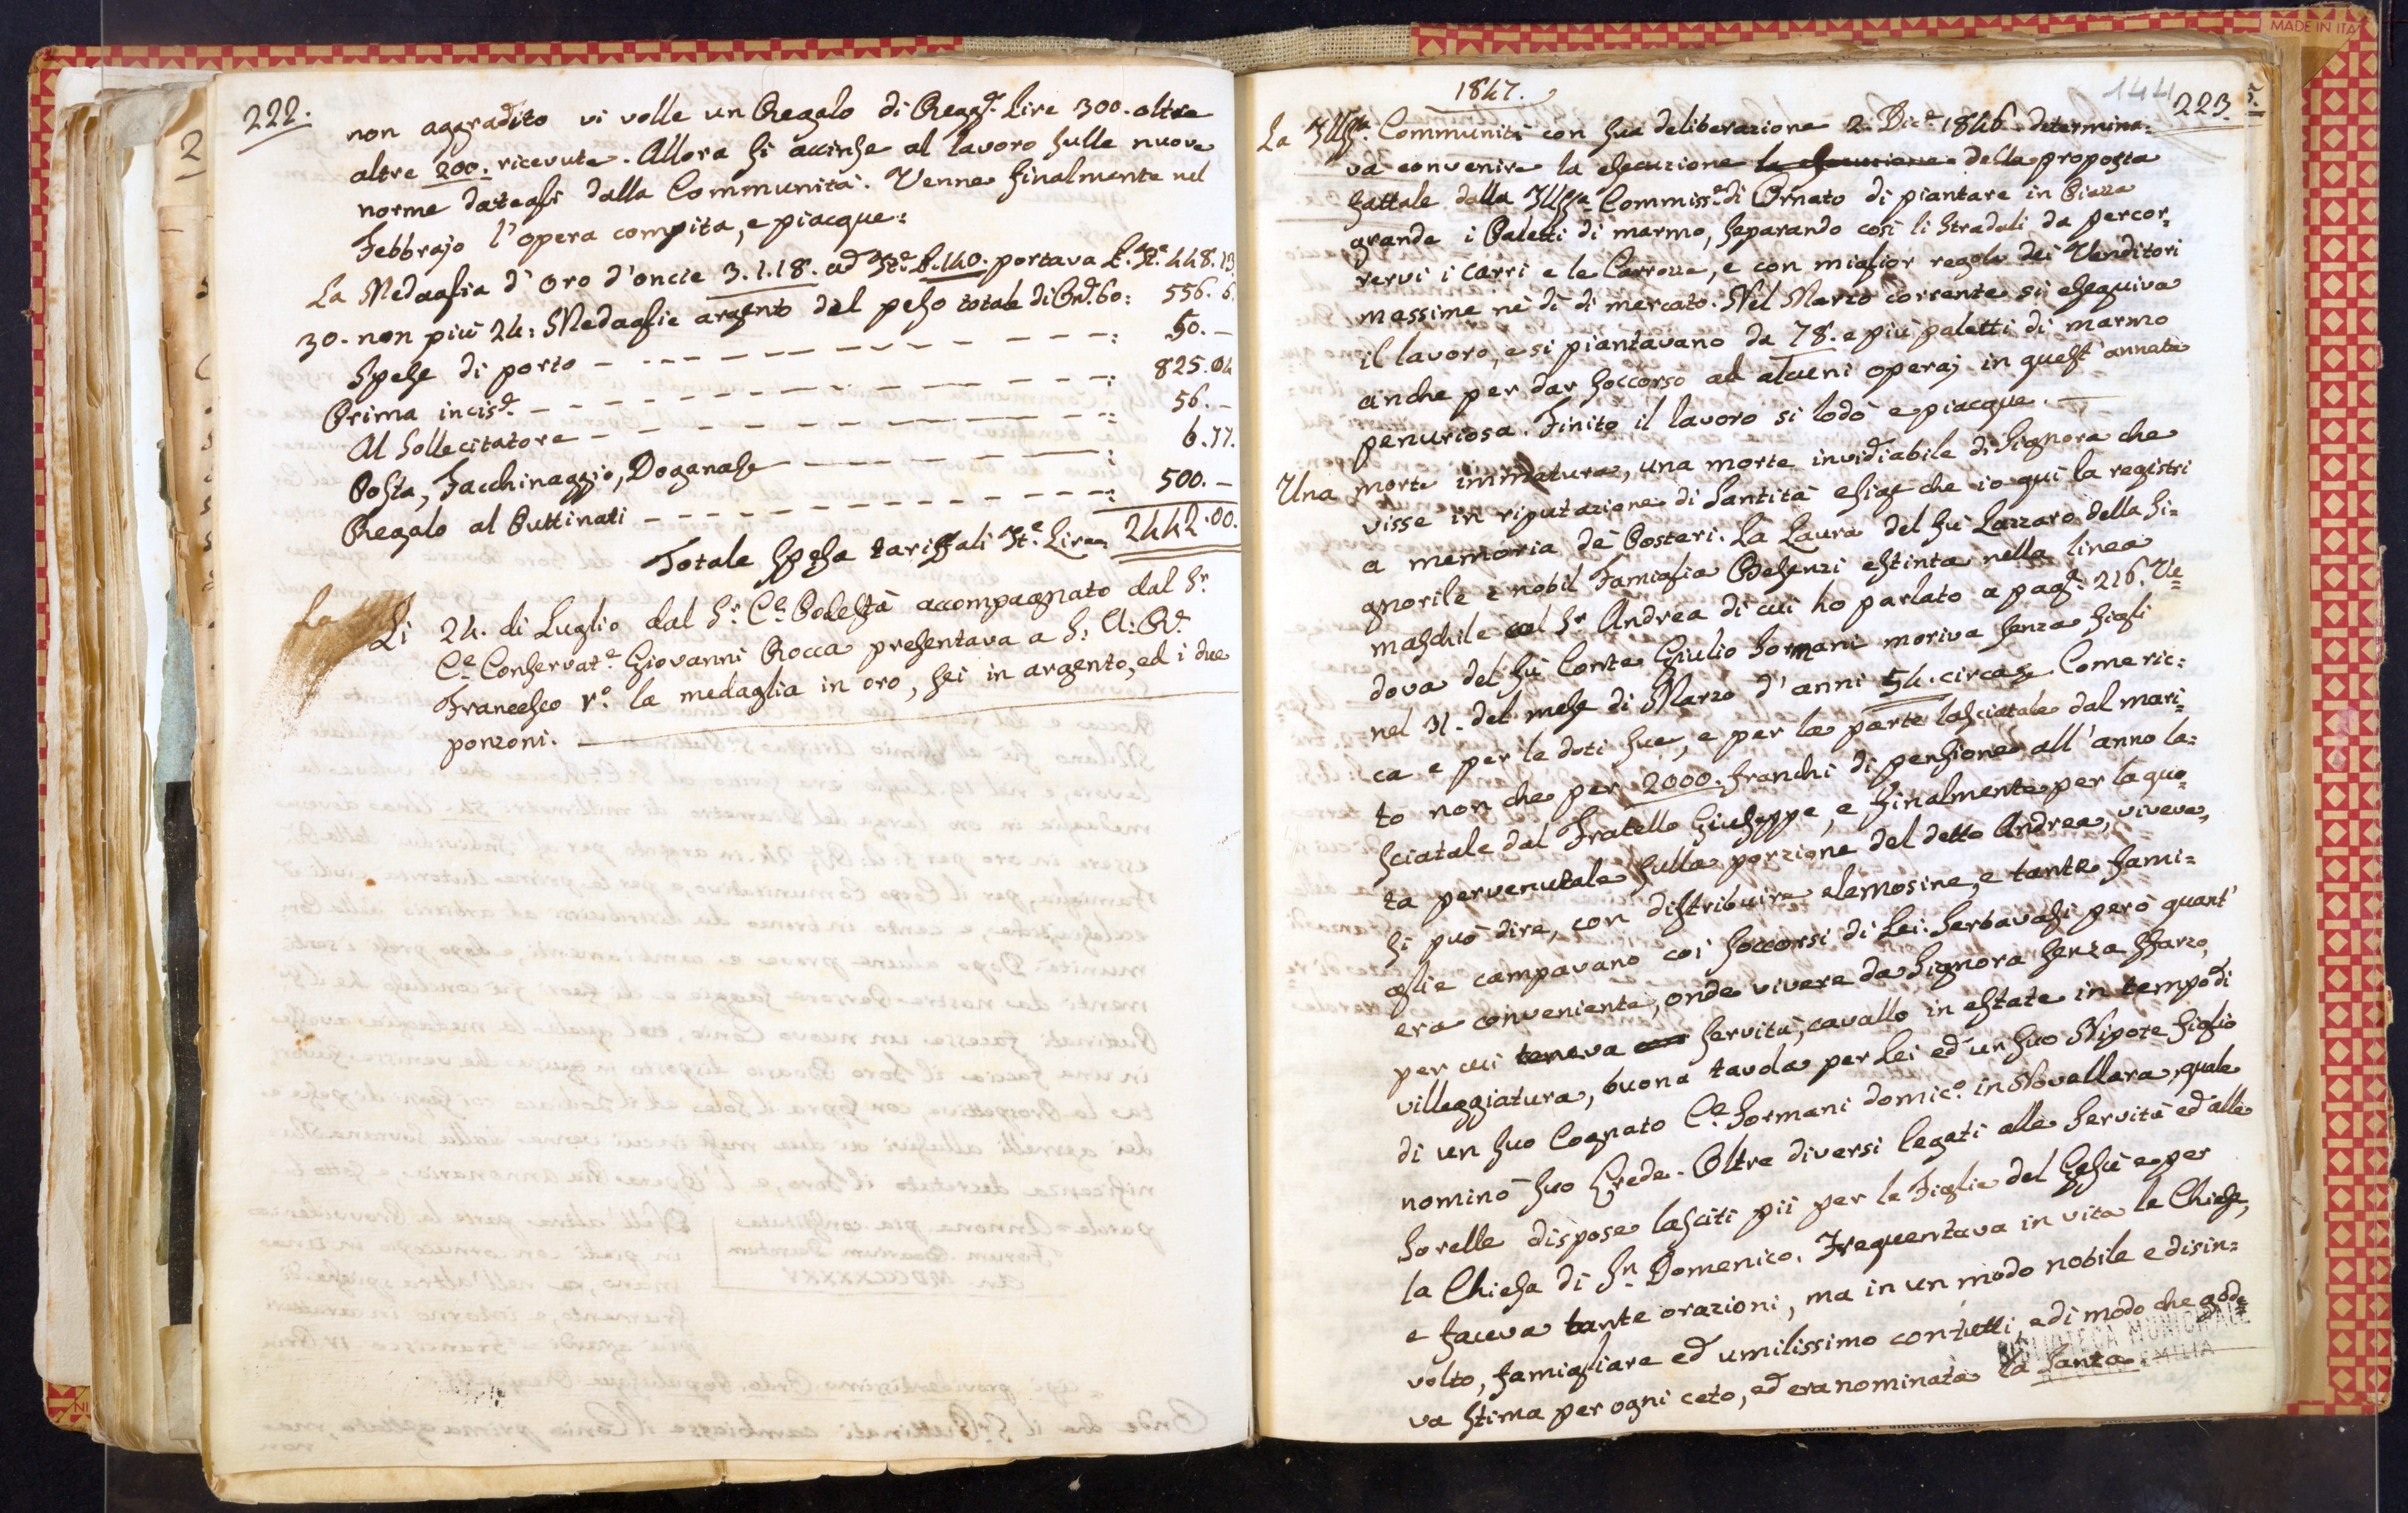 222.
non aggradito vi volle un Regalo di Regg.e Lire 300. oltre
altre 200. ricevute. Allora si accinse al lavoro sulle nuove
norme dategli dalla Communità. Venne finalmente nel
Febbrajo l'opera compita, e piacque:
La Medaglia d'oro d'oncie 3.1.18. ad It.e £.140. portava £. It.e 448.13
30. non più 24: Medaglie argento del peso totale di 60: 556. 6.
Spese di porto - - - - - - - - - - : 50. -
Prima incis.e - - - - - - - - - - : 825.04
Al sollecitatore - - - - - - - - - - : 56. -
Posta, Facchinaggio, Doganale - - - - - - : 6.77.
Regalo al Puttinati - - - - - - - - - - : 500. -
Totale Spesa tariffali It.e Lire 2442.00.
La
Li 24. di Luglio dal S.r C.e Podestà accompagnato dal S.r
C.e Conservat.e Giovanni Rocca presentava a S: A: R.e
Francesco V.o la medaglia in oro, sei in argento, ed i due
ponzoni.
1847.
144
223.
La Illma Communità con sua deliberazione 2. Dic.e 1846. determina=
va convenire la esecuzione la esecuzione della proposta
fattale dalla Illma Commiss.e di Ornato di piantare in Piazza
grande i Paletti di marmo, separando così li stradali da percor=
rervi i carri e le Carrozze, e con miglior regola dei Venditori
massime nè dì di mercato. Nel Marzo corrente si eseguiva
il lavoro, e si piantavano da 78. e più paletti di marmo
anche per dar soccorso ad alcuni operaj in quest'annata
penuriosa. Finito il lavoro si lodò e piacque.
Una morte immatura, una morte invidiabile di Signora che
visse in riputazione di Santità esige che io quì la registri
a memoria dè Posteri. La Laura del fù Lazzaro della Si=
gnorile e nobil Famiglia Besenzi estinta nella linea
maschile col S.r Andrea di cui ho parlato a pag.e 216. Ve=
dova del fù Conte Giulio Sormani moriva senza figli
nel 31. del mese di Marzo d'anni 54. circa. Come ric=
ca e per le doti sue, e per la parte lasciatale dal mari=
to non che per 2000. franchi di pensione all'anno la=
sciatale dal Fratello Giuseppe, e finalmente per la quo=
ta pervenutale sulla porzione del detto Andrea, viveva,
si può dire, con distribuire elemosine, e tante fami=
glie campavano coi soccorsi di Lei. Serbavasi però quant'
era conveniente, onde vivere da Signora senza sfarzo,
per cui teneva servitù, cavallo in estate in tempo di
villeggiatura, buona tavola per Lei ed un suo Nipote figlio
di un suo Cognato C.e Sormani domic.o in Novellara, quale
nominò suo Erede. Oltre diversi legati alle Servitù ed alle
Sorelle dispose lasciti pii per le Figlie del Gesù e per
la Chiesa di S.n Domenico. Frequentava in vita le Chiese,
e faceva tante orazioni, ma in un modo nobile e disin=
volto, famigliare ed umilissimo con tutti, e di modo che gode=
va stima per ogni ceto, ed era nominata la Santa.
BIBLIOTECA MUNICIPALE
EMILIA
MADE IN ITA